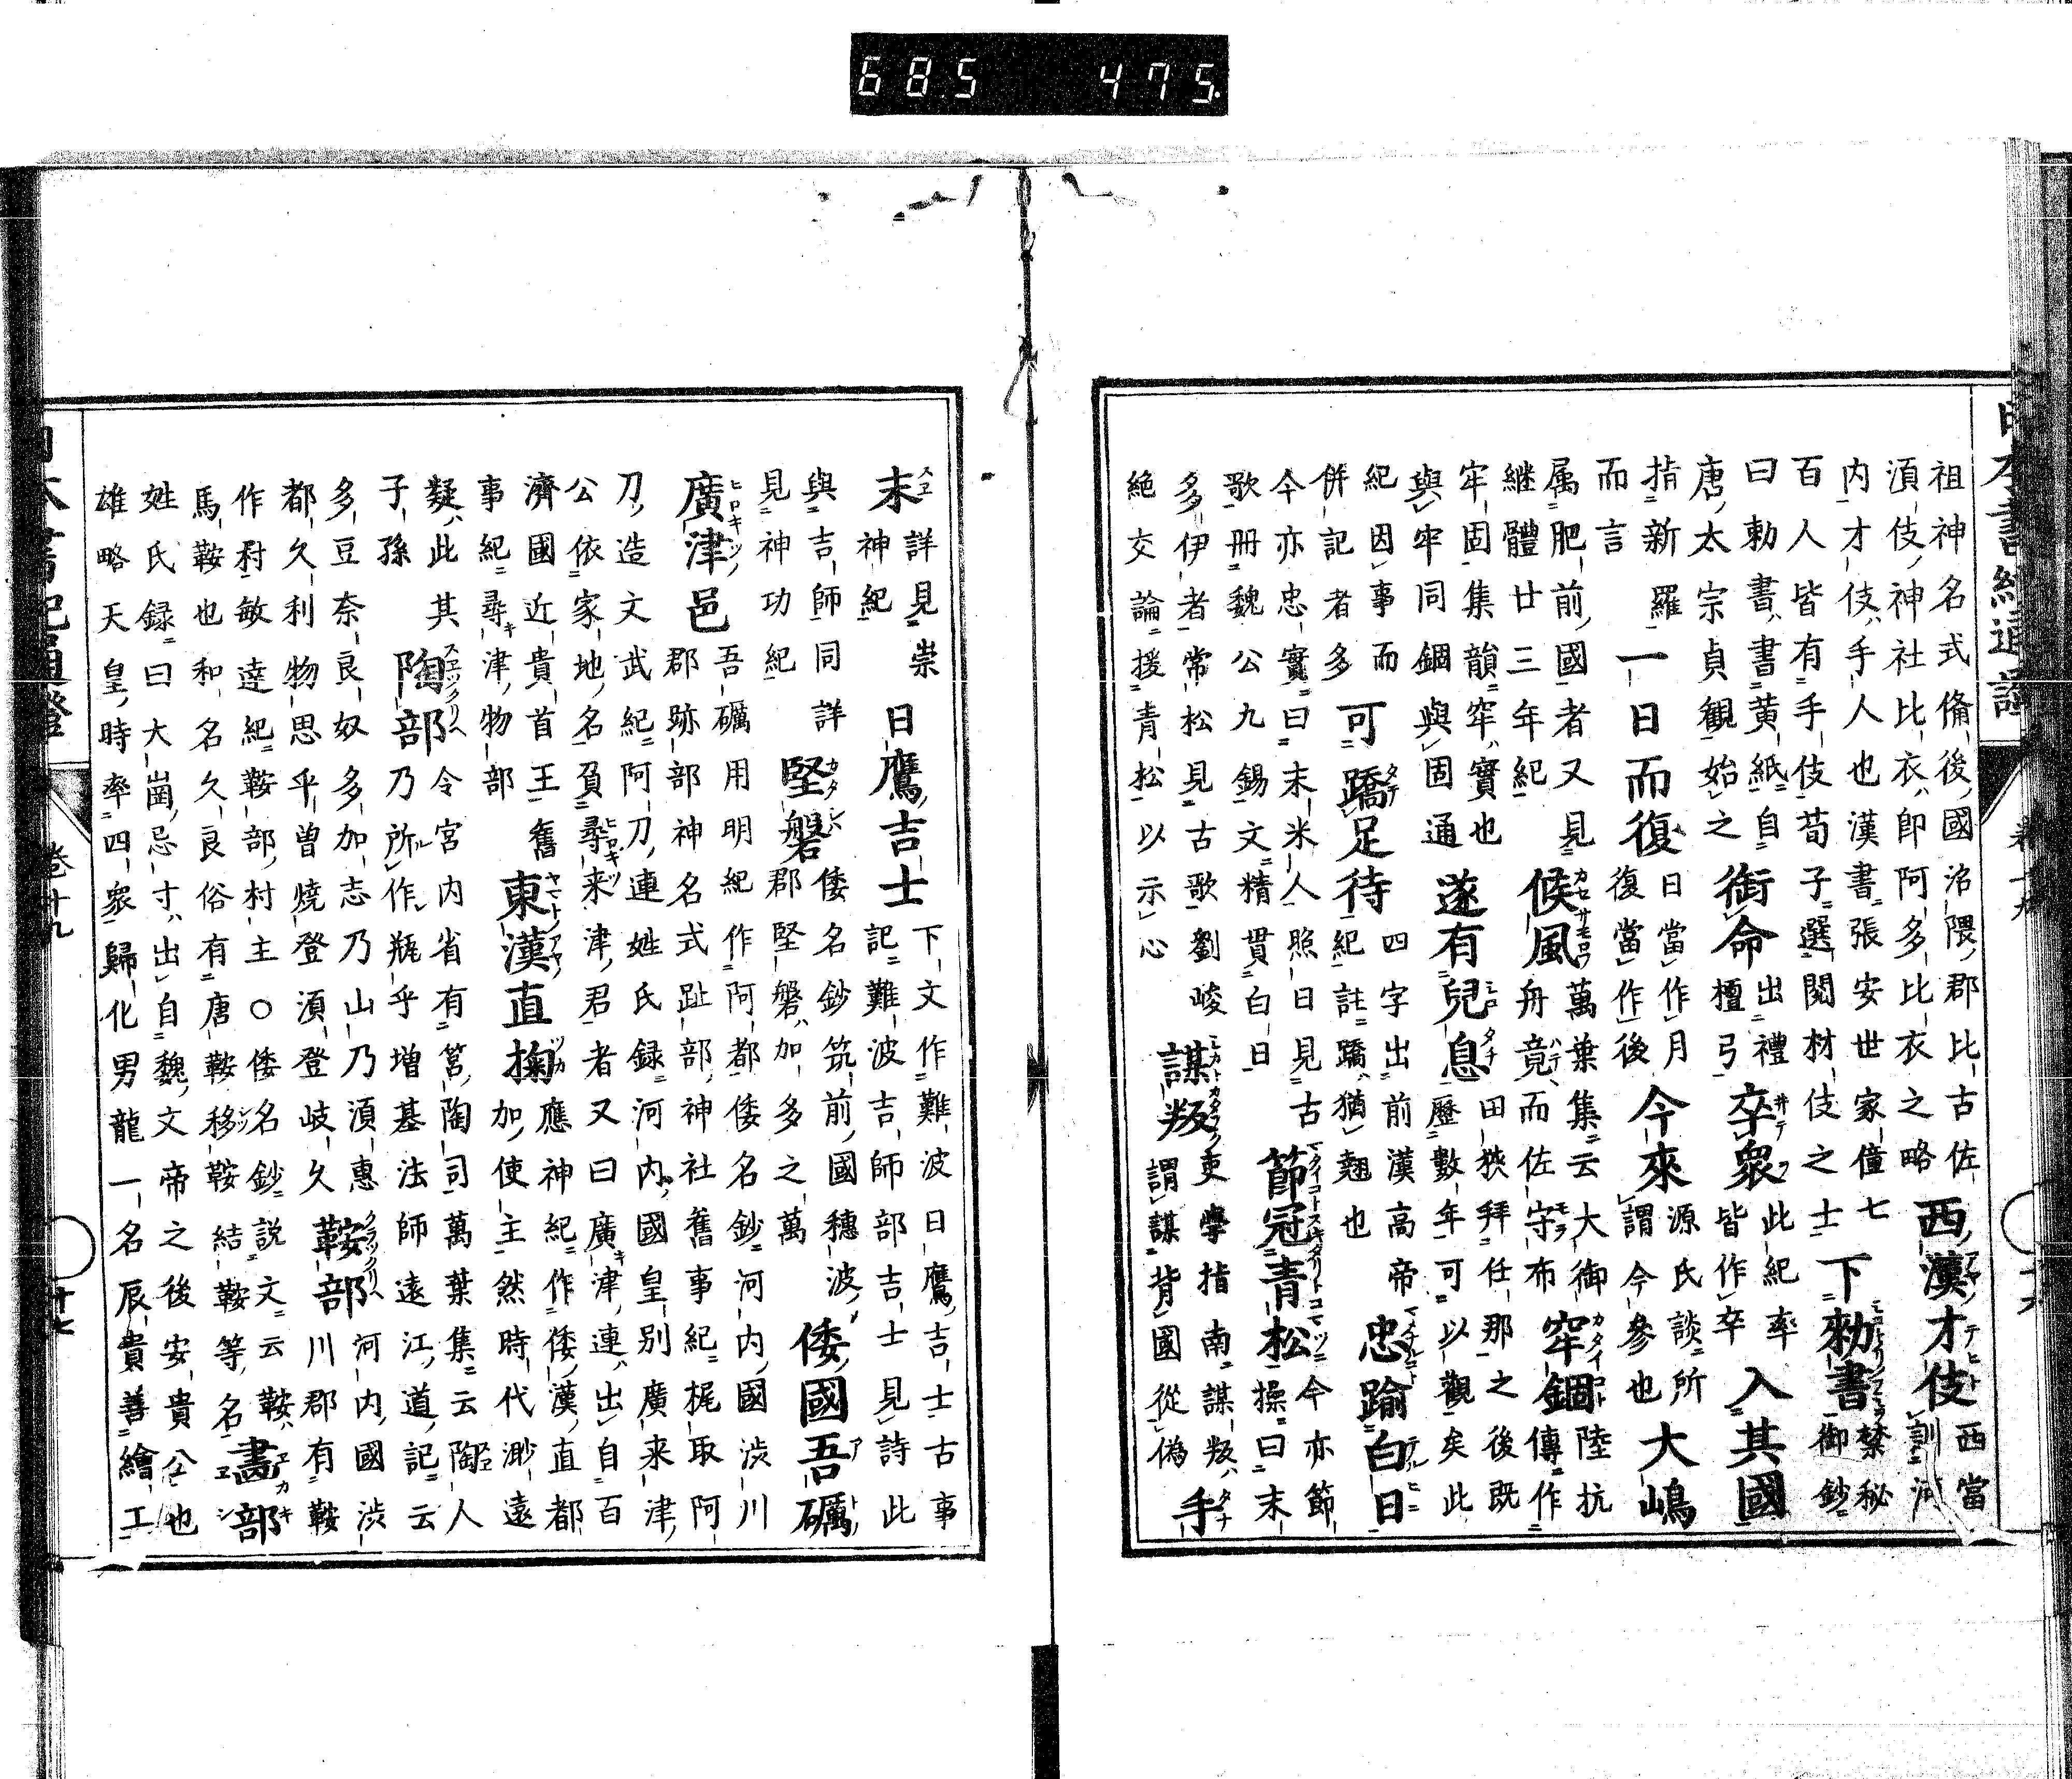 祖神名式備後國沼隈郡比古佐
湏伎神社比衣即阿多比衣之略
西漢才伎
西當
訓河
内才伎手人也漢書張安世家僮七
百人皆有手伎荀子選閲材伎之士
下勑書
禁秘
御鈔
曰勅書書黄紙自
唐太宗貞観始之
銜命
出禮
檀弓
卒衆
此紀率
皆作卒
入其國
指新羅
而言
一日而復
日當作月
復當作後
今來
源氏談所
謂今參也
大嶋
属肥前國者又見
継體廿三年紀
候風
萬葉集云大御
舟竟而佐守布
窂錮
陸抗
傳作
牢固集韻窂實也
與牢同錮與固通
遂有兒息
田狭拜任那之後既
歷數年可以觀矣此
紀因事而
併記者多
可蹻足待
四字出前漢高帝
紀註蹻猶翹也
忠踰白日
今亦忠實曰末米人照日見古
歌冊魏公九錫文精貫白日
節冠青松
今亦節
操曰末
多伊者常松見古歌劉峻
絶交論援青松以示心
謀叛
吏學指南謀叛
謂謀背國從偽
手
末
詳見崇
神紀
日鷹吉士
下文作難波日鷹吉士古事
記難波吉師部吉士見詩此
與吉師同詳
見神功紀
堅磐
倭名鈔筑前國穗波
郡堅磐加多之萬
倭國吾礪
廣津邑
吾礪用明紀作阿都倭名鈔河内國渋川
郡跡部神名式趾部神社舊事紀梶取阿
刀造文武紀阿刀連姓氏録河内國皇別廣来津
公依家地名負尋来津君者又曰廣津連出自百
濟國近貴首王舊
事紀尋津物部
東漢直掬
應神紀作倭漢直都
加使主然時代渺遠
疑此其
子孫
陶部
令宮内省有筥陶司萬葉集云陶人
乃所作瓶乎増基法師遠江道記云
多豆奈良奴多加志乃山乃湏惠
都久利物思乎曽焼登湏登岐久
鞍部
河内國渋
川郡有鞍
作村主敏達紀鞍部村主○倭名鈔説文云鞍
馬鞍也和名久良俗有唐鞍移鞍結鞍等名
畫部
姓氏録曰大崗忌寸出自魏文帝之後安貴公也
雄略天皇時率四衆歸化男龍一名辰貴善繪工
卷十九
十七